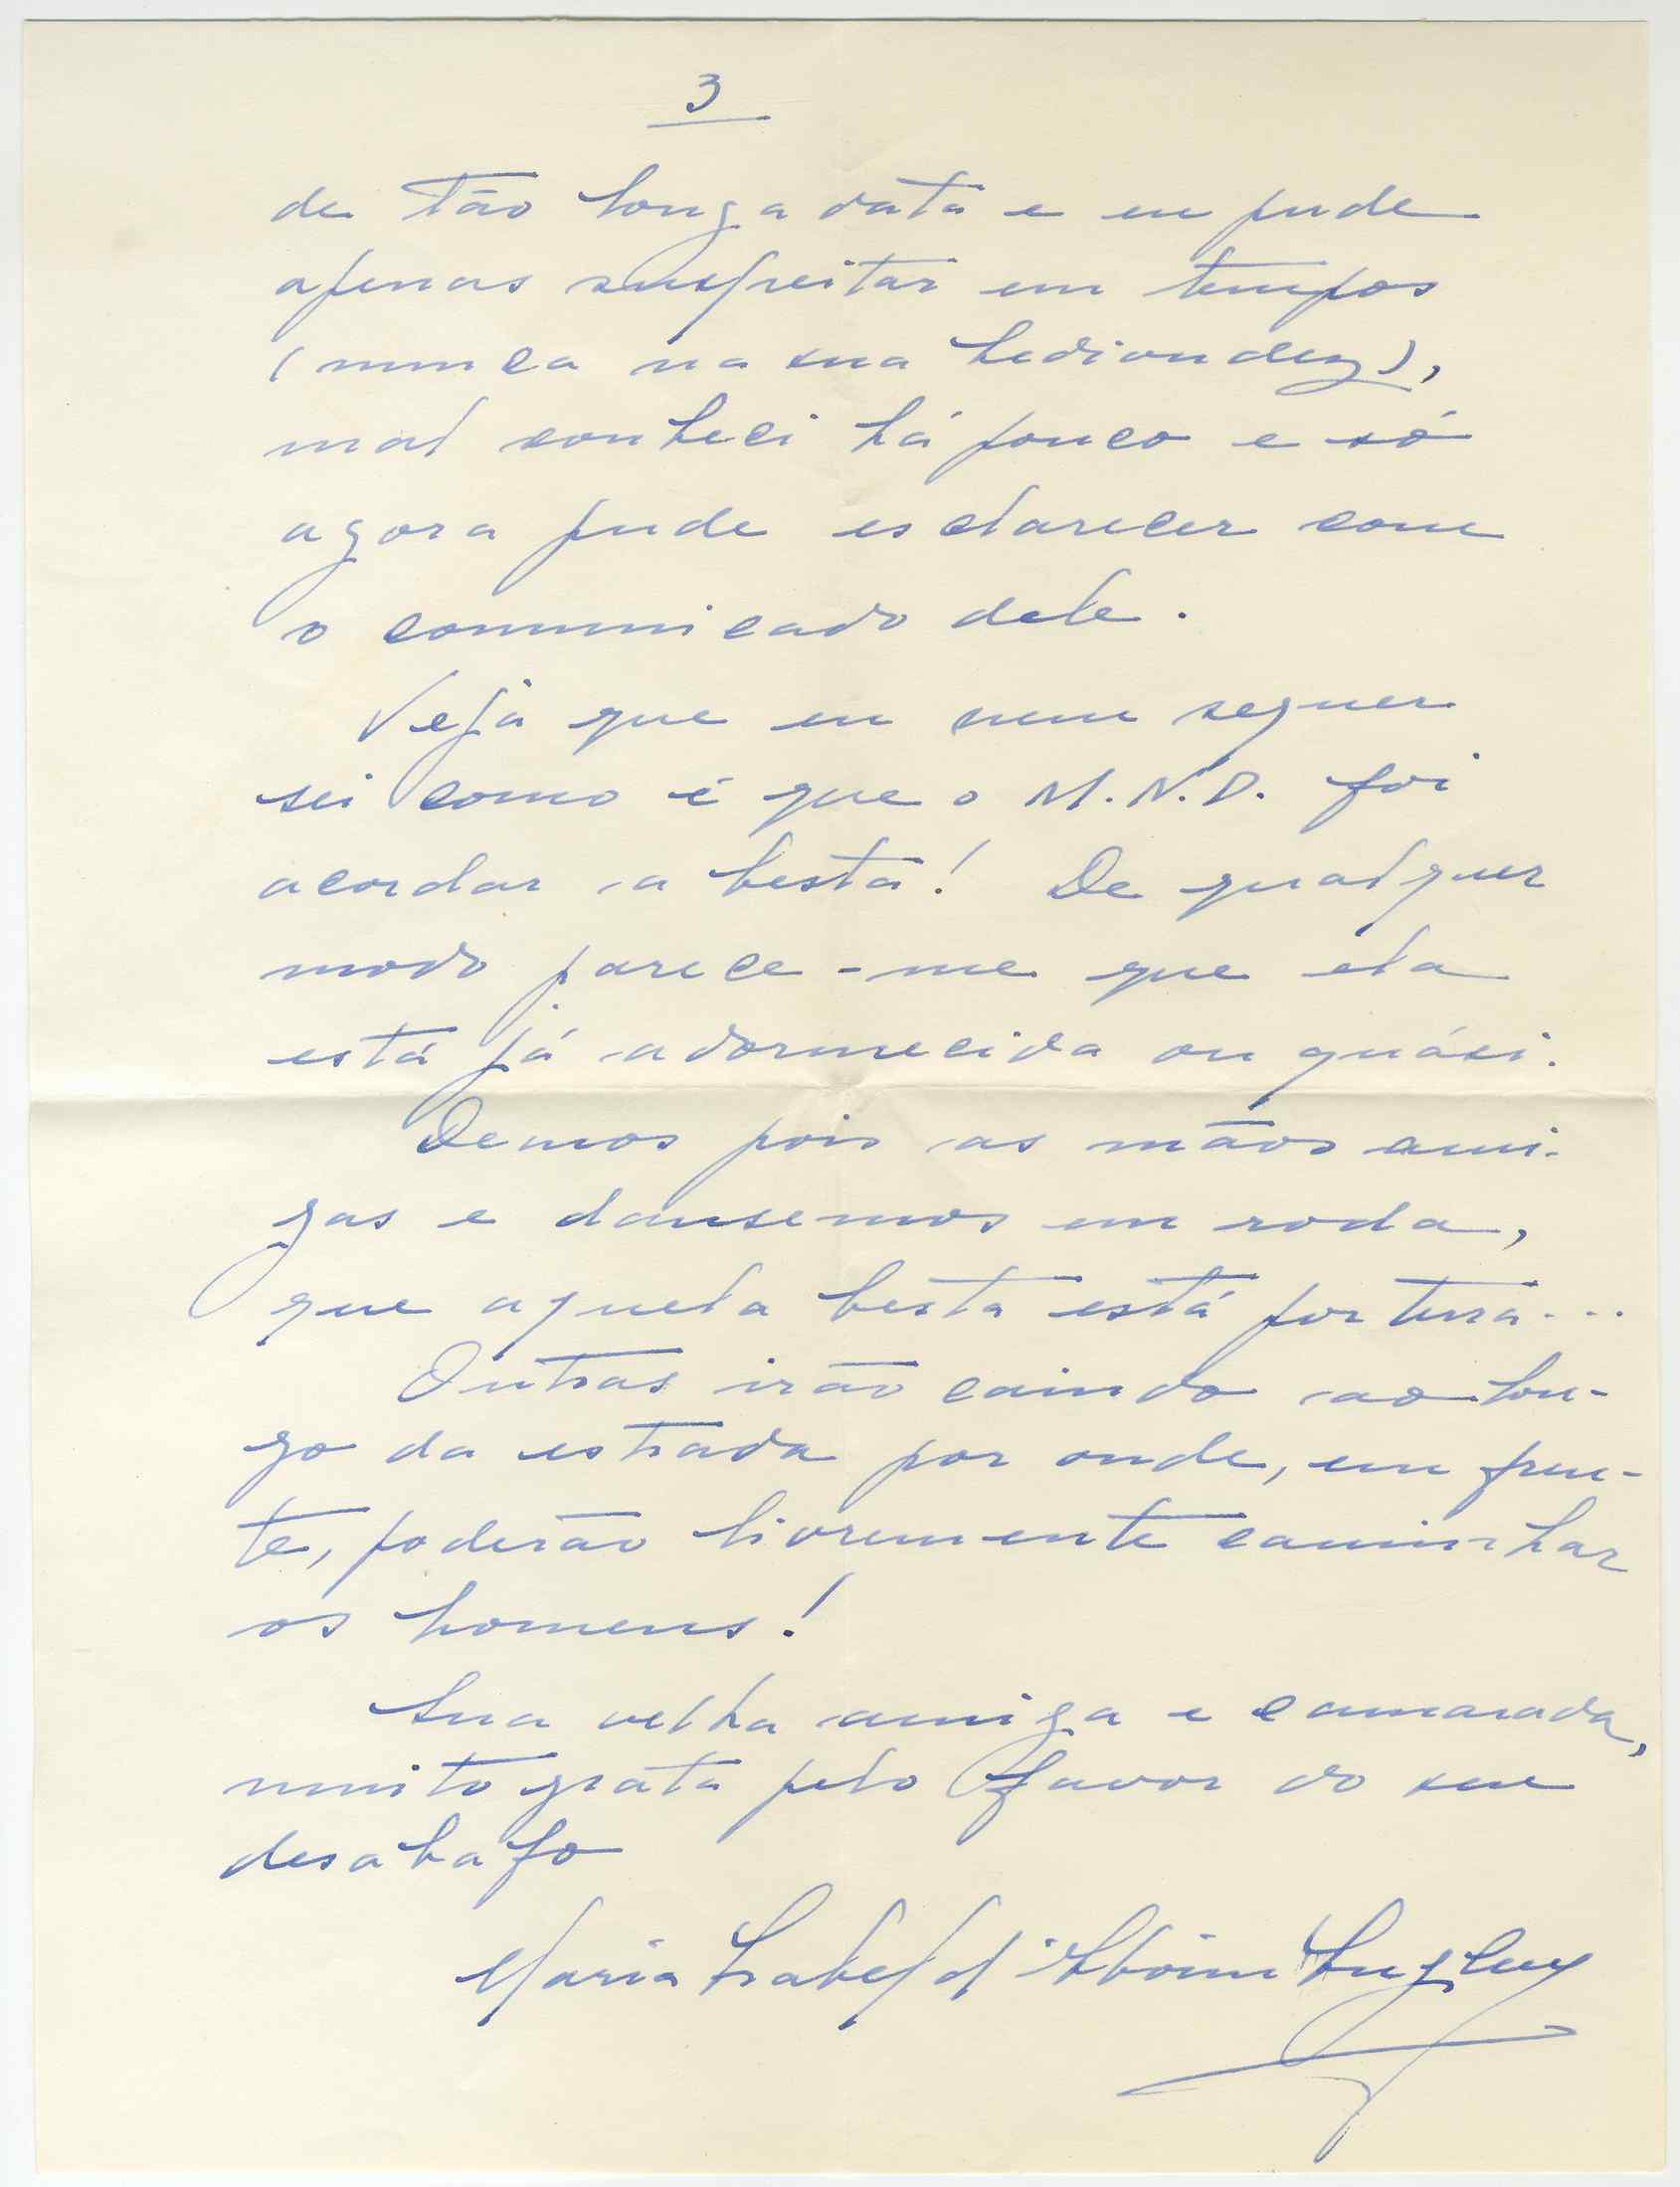 3
de tão longa data e eu pude
apenas suspeitar em tempos
(nunca na sua hediondez),
mal conheci há pouco e só
agora pude esclarecer com
o comunicado dele.
Veja que eu nem sequer
sei como é que o M.N.D. foi
acordar a besta! De qualquer
modo parece-me que ela
está já adormecida ou quási.
Demos pois as mãos ami-
gas e dansemos em roda,
que aquela besta está por terra...
Outras irão caindo ao lon-
go da estrada por onde, em fren-
te, poderão livremente caminhar
os homens!
Sua velha amiga e camarada,
muito grata pelo favor do seu
desabafo
Maria Isabel d'Aboim Inglez